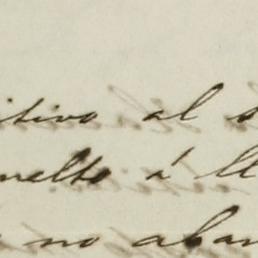 itivo al s
uelto á ll
no aban